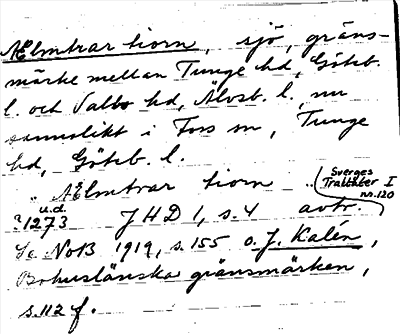 Ælmtrar tiorn, sjö, gräns-
märke mellan Tunge hd, Göteb.
l. och Valbo hd, Älvsb. l., nu
sannolikt i Fors sn, Tunge
hd, Göteb. l.
„ Ælmtrar tiorn ..
Sverges
Traktater I
nr. 120
u.d.
? 1273 JHD 1, s. 4 avtr.
Se NoB 1919, s. 155 o. J. Kalén,
Bohuslänska gränsmärken,
s. 112 f.